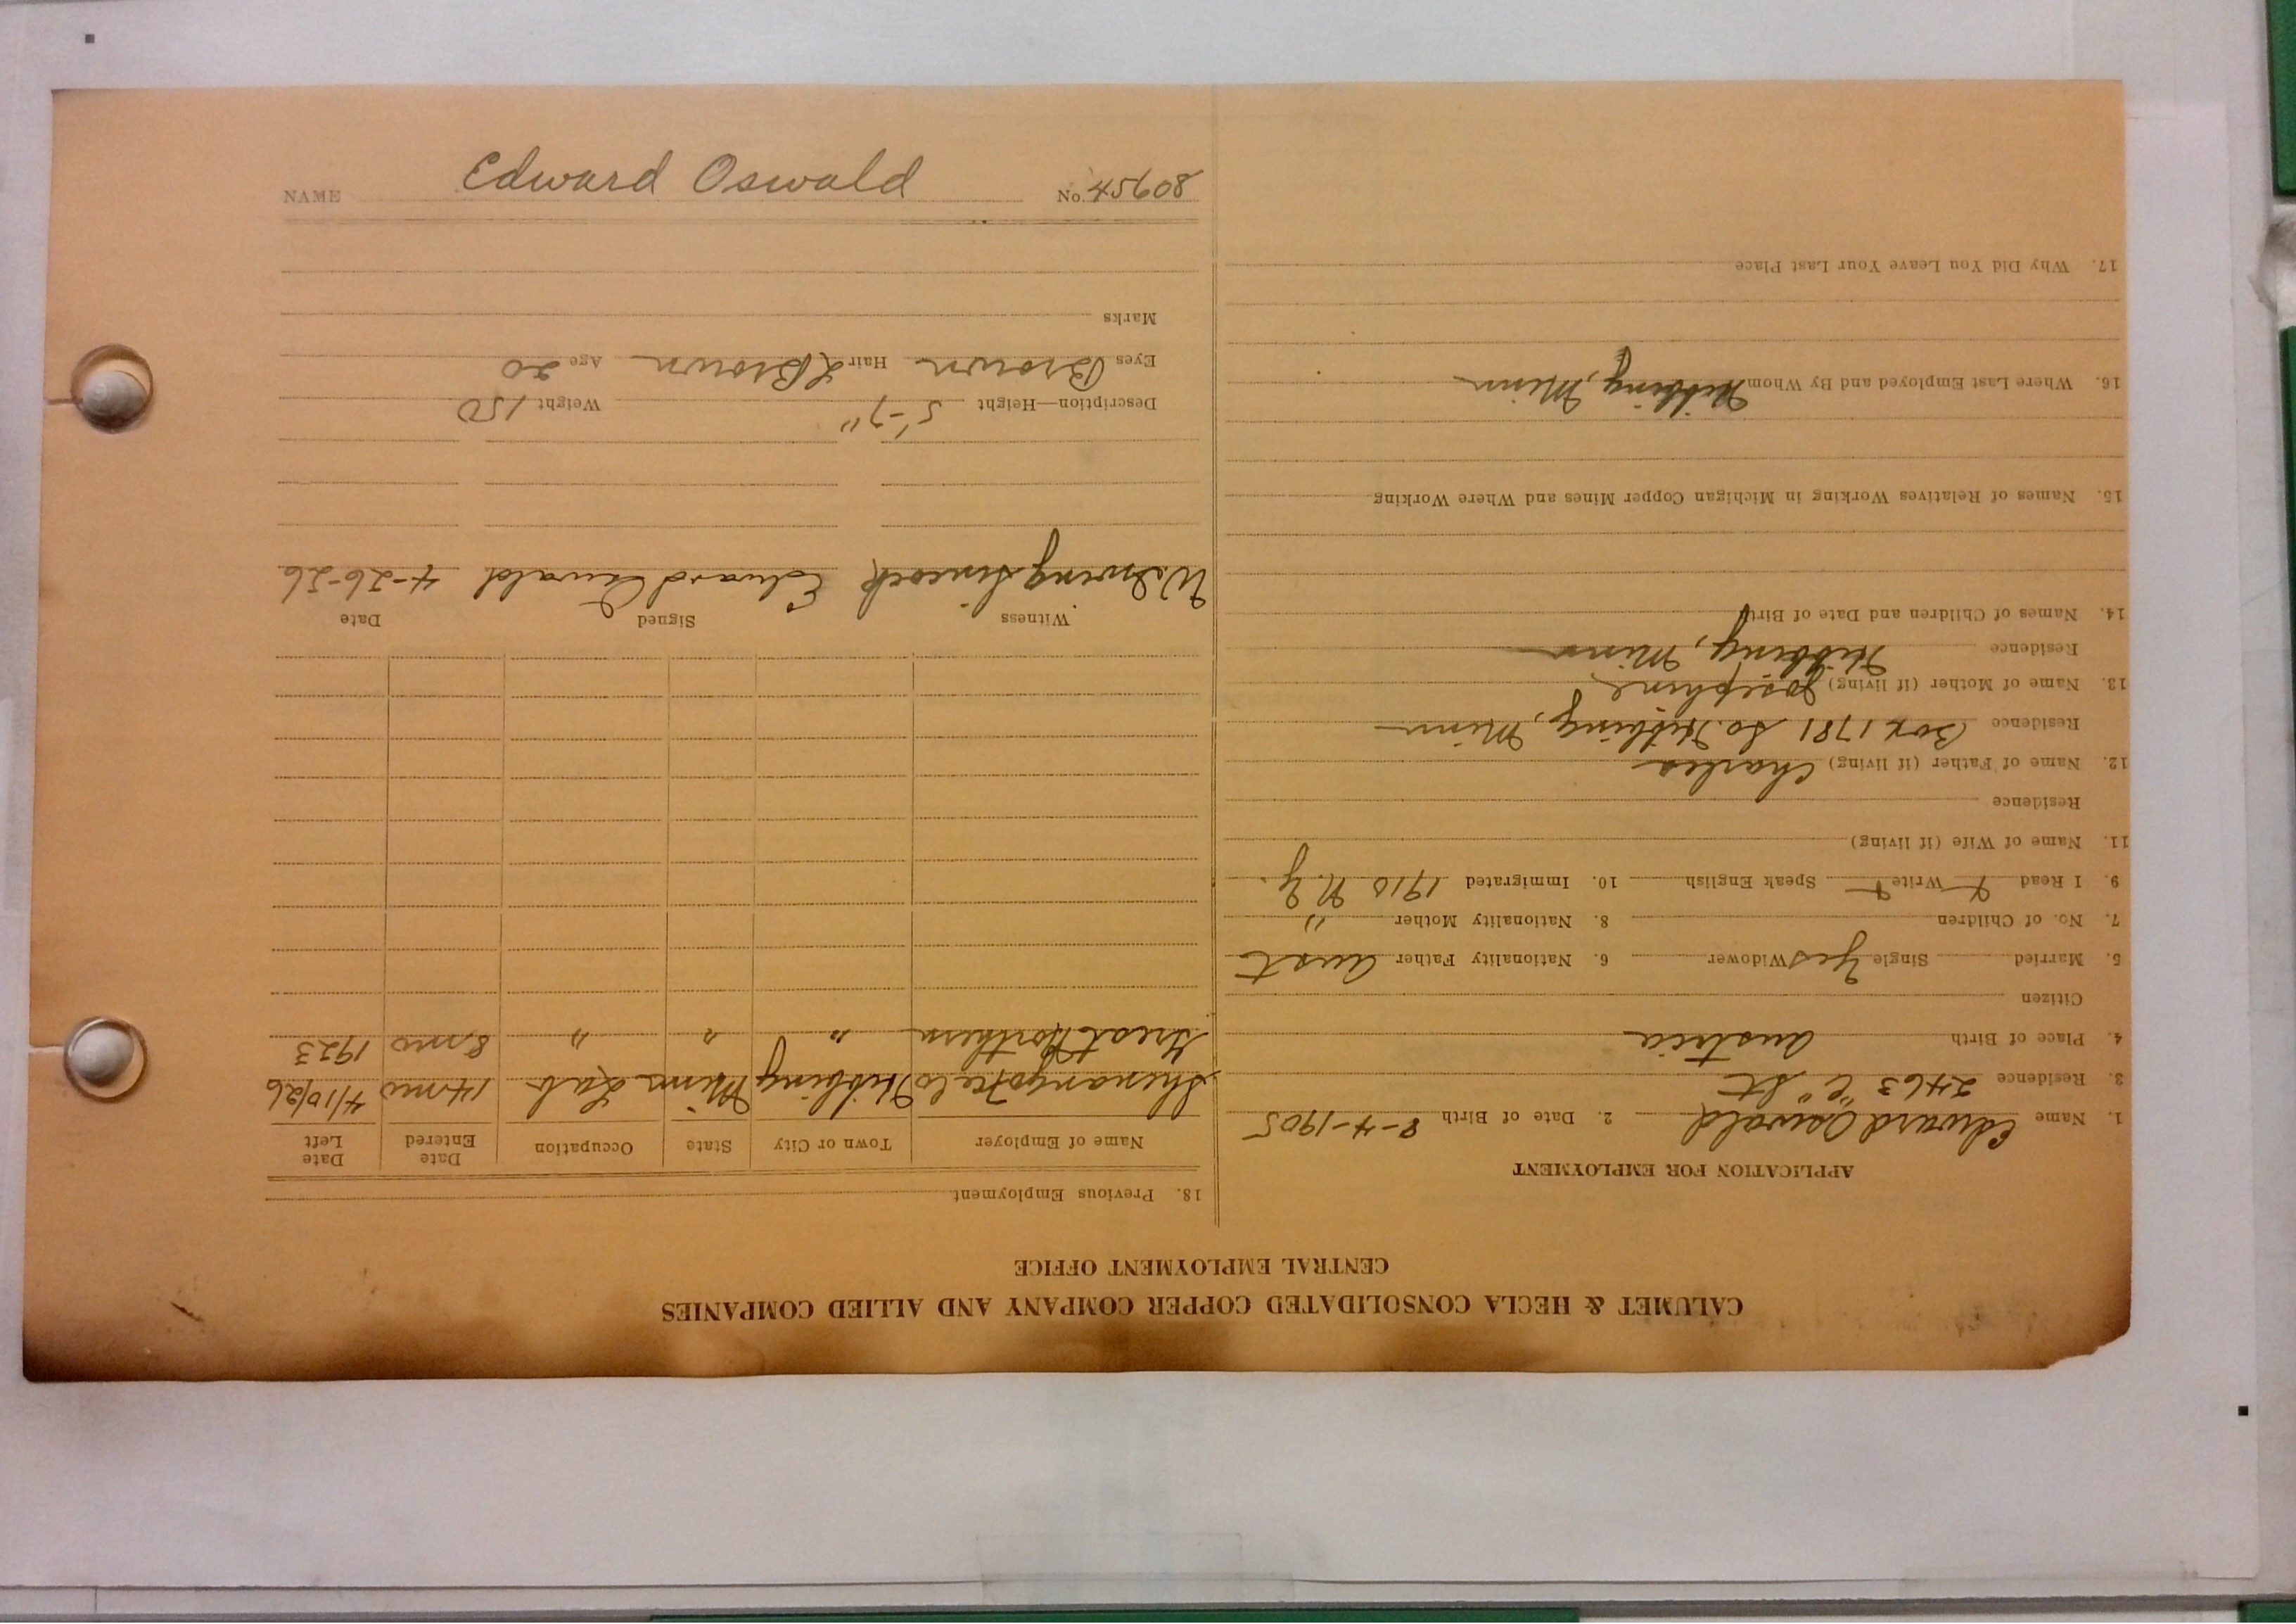 NAME Edward Oswald No. 45608
CALUMET & HECLA CONSOLIDATED COPPER COMPANY AND ALLIED COMPANIES
CENTRAL EMPLOYMENT OFFICE
APPLICATION FOR EMPLOYMENT
1. Name Edward Oswald 2. Date of Birth 8-4-1905
3. Residence 2463 "C" St
4. Place of Birth Austria
Citizen
5. Married Single Yes Widower 6. Nationality Father Aust
7. No. of Children 8. Nationality Mother "
9. I Read Write Speak English 10. Immigrated 1910 N.Y.
11. Name of Wife (if living)
Residence
12. Name of Father (if living) Charles
Residence Box 1781 So. Hibbing, Minn
13. Name of Mother (if living) Josephine
Residence Hibbing, Minn
14. Names of Children and Date of Birth
15. Names of Relatives Working in Michigan Copper Mines and Where Working
16. Where Last Employed and By Whom Hibbing, Minn
17. Why Did You Leave Your Last Place
18. Previous Employment
Name of Employer Town or City State Occupation Date Entered Date Left
Shenango Fce Co Hibbing Minn Lab 14 mo 4/10/26
Great Northern " " " 8 mo 1923
Witness Signed Date
Edward Oswald 4-26-26
Description—Height 5'-7" Weight 150
Eyes Brown Hair L Brown Age 20
Marks